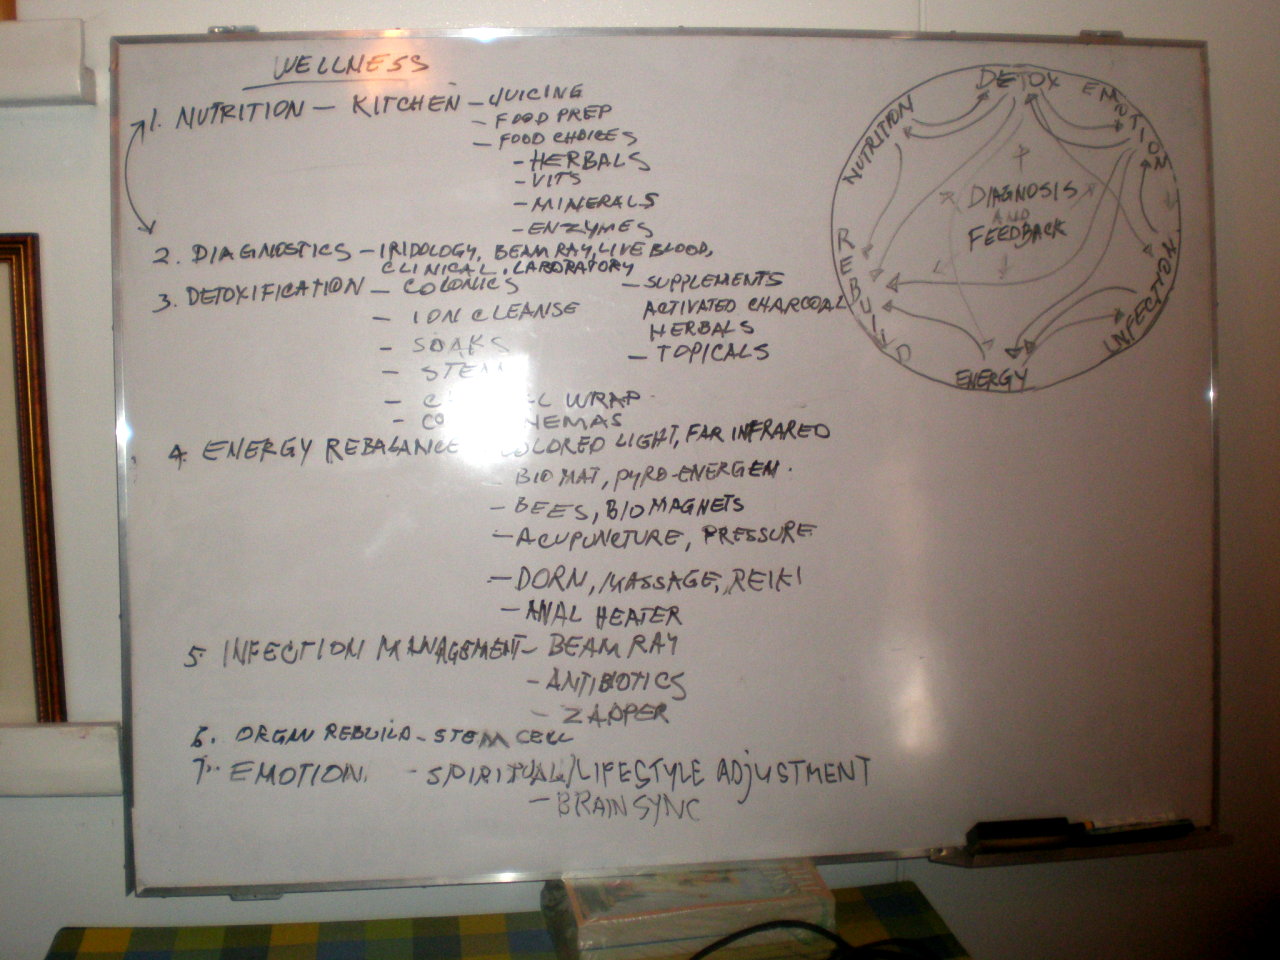 WELLNESS
1. NUTRITION - KITCHEN - JUICING
- FOOD PREP
- FOOD CHOICES
- HERBALS
- VITS
- MINERALS
- ENZYMES
2. DIAGNOSTICS - IRIDOLOGY, BEAM RAY, LIVE BLOOD,
CLINICAL, LABORATORY
3. DETOXIFICATION - COLONICS
- ION CLEANSE
- SOAKS
- WRAP
- SUPPLEMENTS
ACTIVATED CHARCOAL
HERBALS
- TOPICALS
4. ENERGY REBALANCE LIGHT, FAR INFRARED
BIOMAT, PYRO-ENERGEN.
- BEES, BIOMAGNETS
- ACUPUNCTURE, PRESSURE
- DORN, MASSAGE, REIKI
- ANAL HEATER
5. INFECTION MANAGEMENT - BEAM RAY
- ANTIBIOTICS
- ZAPPER
6. ORGAN REBUILD - STEM CELL
7. EMOTION - SPIRITUAL/LIFESTYLE ADJUSTMENT
- BRAIN SYNC
DETOX
EMOTION
INFECTION
ENERGY
REBUILD
NUTRITION
DIAGNOSIS
AND
FEEDBACK